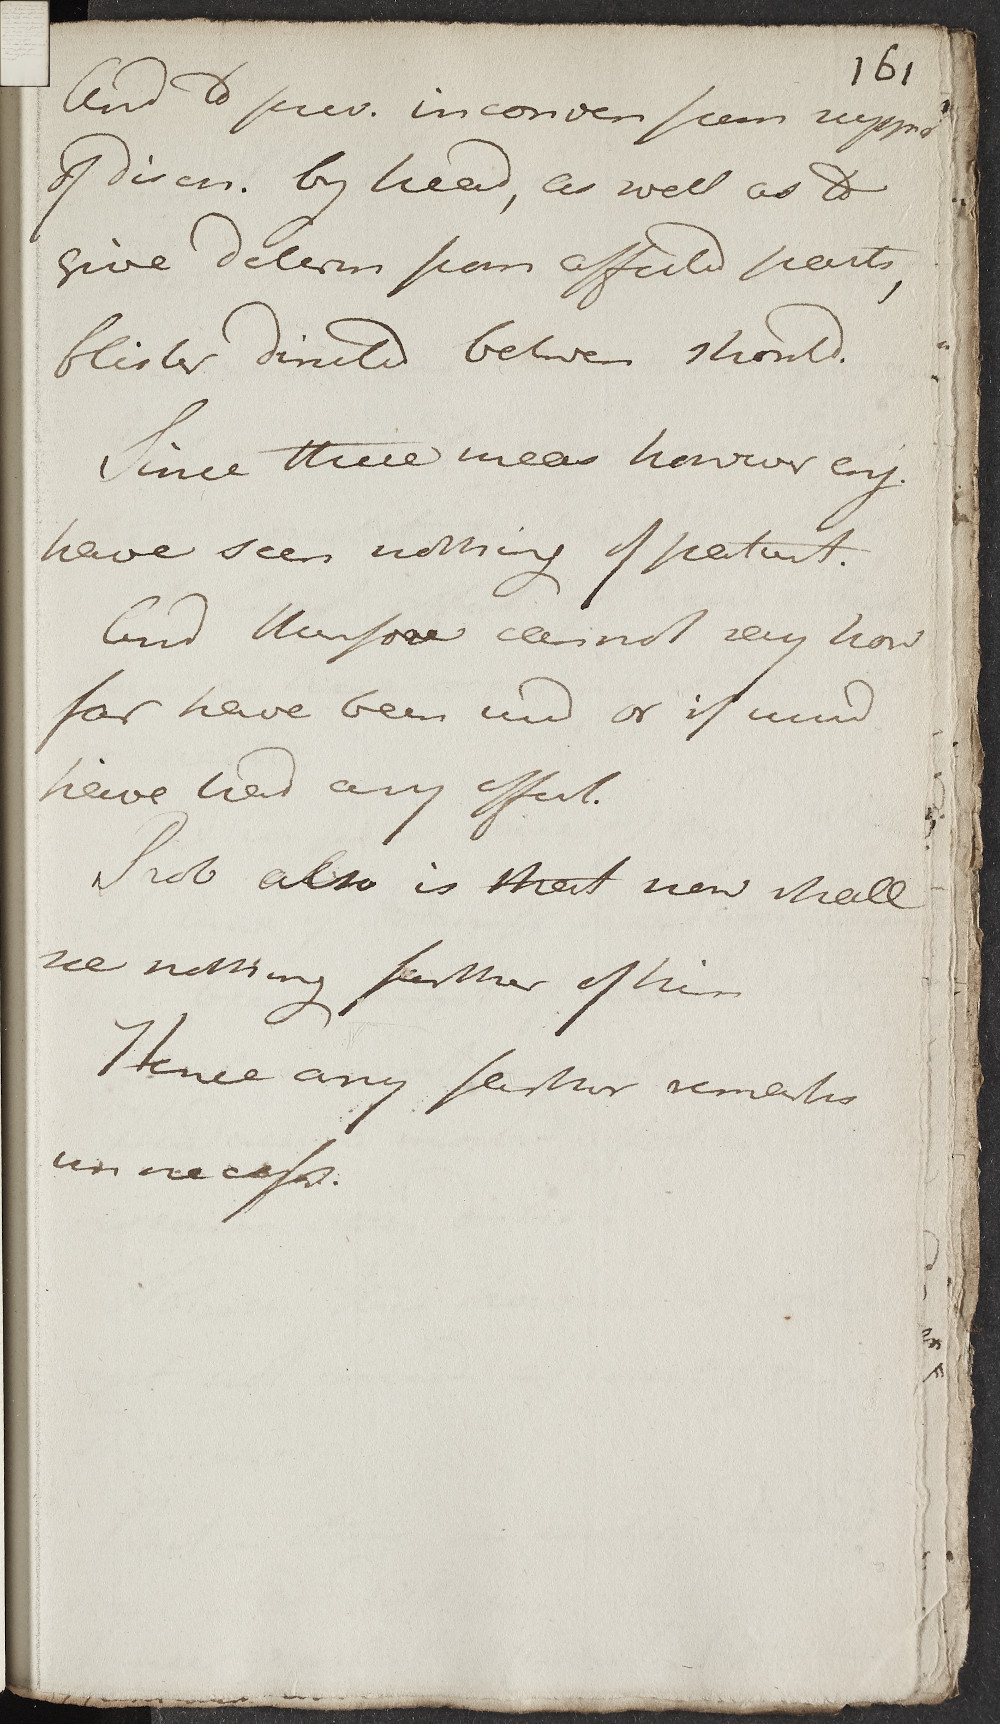 161
And to prev. inconven from suppress
of disch. by head, as well as to
give determ from affected parts,
blister directed between should.
Since these meas however empl.
have seen nothing of patient.
And therefore cannot say how
far have been used or if used
have had any effect.
Prob also is that now shall
see nothing farther of him
Hence any farther remarks
unnecess.